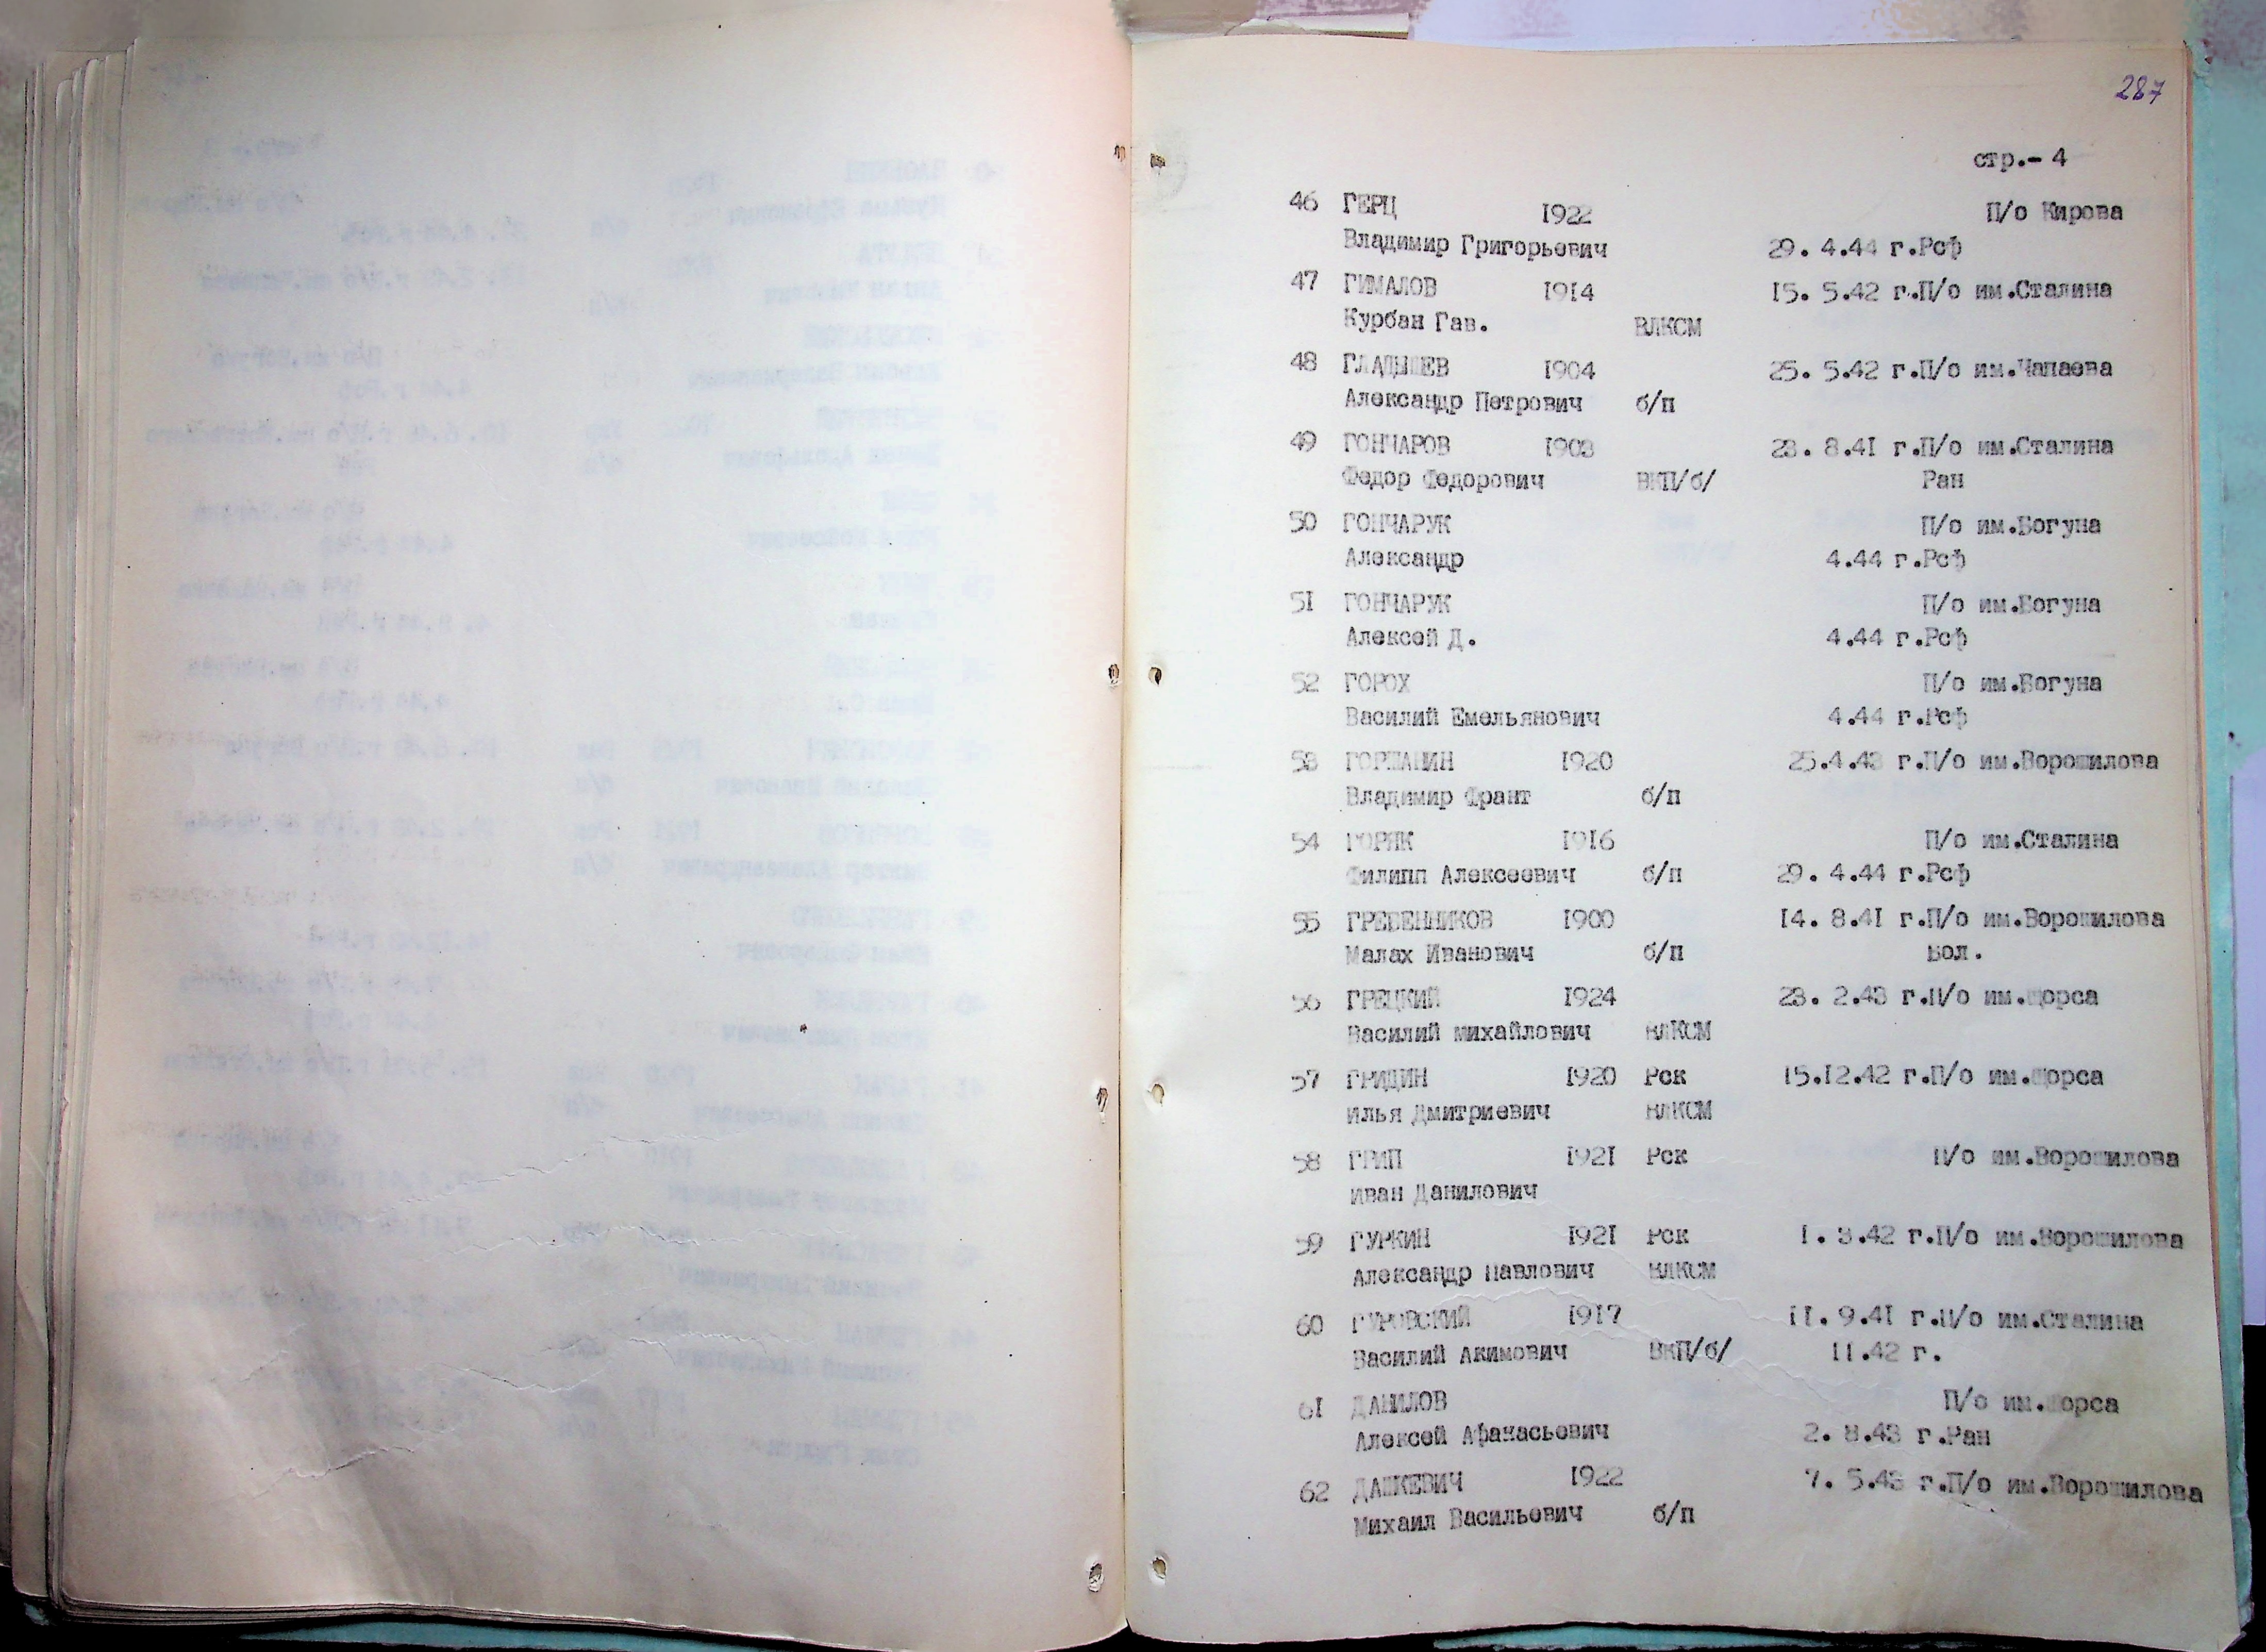 287
стр.- 4
46 ГЕРЦ 1922 П/о Кирова
Владимир Григорьевич 29. 4.44 г.Рсф
47 ГИМАЛОВ 1914 15. 5.42 г.П/о им.Сталина
Курбан Гав. ВЛКСМ
48 ГЛАДЫШЕВ 1904 25. 5.42 г.П/о им.Чапаева
Александр Петрович б/п
49 ГОНЧАРОВ 1903 23. 8.41 г.П/о им.Сталина
Федор Федорович ВКП/б/ Ран
50 ГОНЧАРУК П/о им.Богуна
Александр 4.44 г.Рсф
51 ГОНЧАРУК П/о им.Богуна
Алексей Д. 4.44 г.Рсф
52 ГОРОХ П/о им.Богуна
Василий Емельянович 4.44 г.Рсф
53 1920 25.4.43 г.П/о им.Ворошилова
Владимир Франт б/п
54 ГОРЯК 1916 П/о им.Сталина
Филипп Алексеевич б/п 29. 4.44 г.Рсф
55 ГРЕБЕННИКОВ 1900 14. 8.41 г.П/о им.Ворошилова
Малах Иванович б/п Бол.
56 ГРЕЦКИЙ 1924 23. 2.43 г.П/о им.Щорса
Василий михайлович ВЛКСМ
57 ГРИДИН 1920 Рск 15.12.42 г.П/о им.Щорса
Илья Дмитриевич ВЛКСМ
58 ГРИП 1921 Рск П/о им.Ворошилова
Иван Данилович
59 ГУРКИН 1921 Рск 1. 3.42 г.П/о им.Ворошилова
Александр Павлович ВЛКСМ
60 ГУРОВСКИЙ 1917 11. 9.41 г.П/о им.Сталина
Василий Акимович ВКП/б/ 11.42 г.
61 ДАНИЛОВ П/о им.Щорса
Алексей Афанасьевич 2. 8.43 г.Ран
62 ДАШКЕВИЧ 1922 7. 5.43 г.П/о им.Ворошилова
Михаил Васильевич б/п